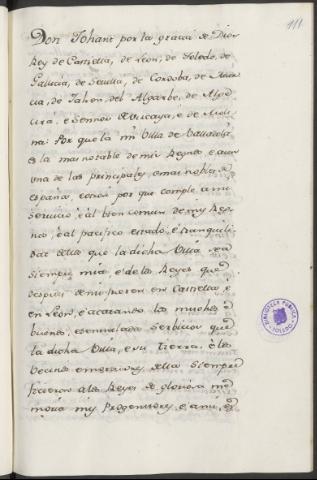 111
Don Johane por la gracia de Dios
Rey de Castiella, de Leon, de Toledo, de
Galicia, de Sevilla, de Cordoba, de Mur
cia, de Jahen, del Algarbe, de Alge
cira, e Sennor de Vizcaya, e de Moli
na: Por que la mi Villa de Valladolid
es la mas notable de mis Reynos, e aun
una de las principales, e mas nobles de
españa, e otrosi por que comple a mi
servicio, e al bien comun de mis Rey
nos, e al pacifico estado, e tranquili
dat dellos que la dicha Villa sea
siempre mia e de los Reyes que
despues de mi fueren en Castiella e
en Leon, e acatando los muchos e
buenos, e sennalados servicios que
la dicha Villa, e su tierra, e los
vecinos e moradores della siempre
ficieron a los Reyes de gloriosa me
moria mis Progenitores, e a mi, es
BIBLIOTECA PUBLICA
TOLEDO